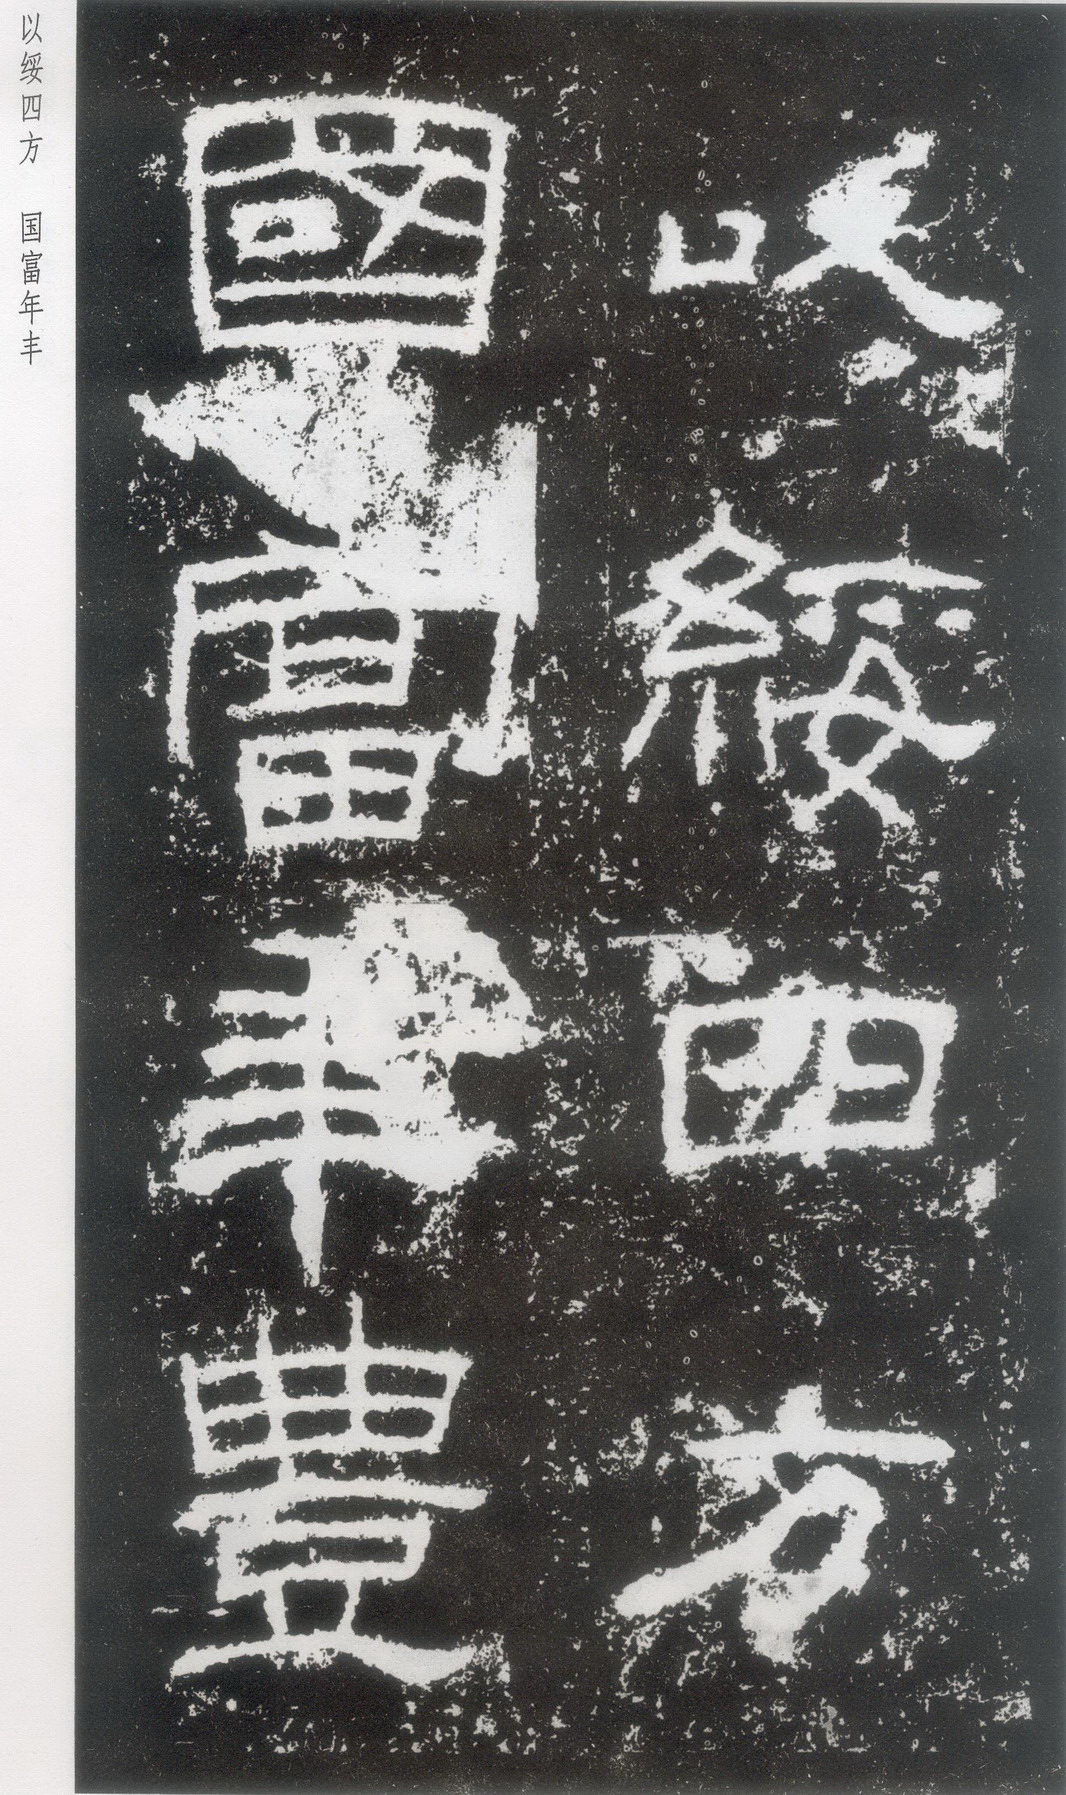 以綏四方
國富年豊
以绥四方 国富年丰